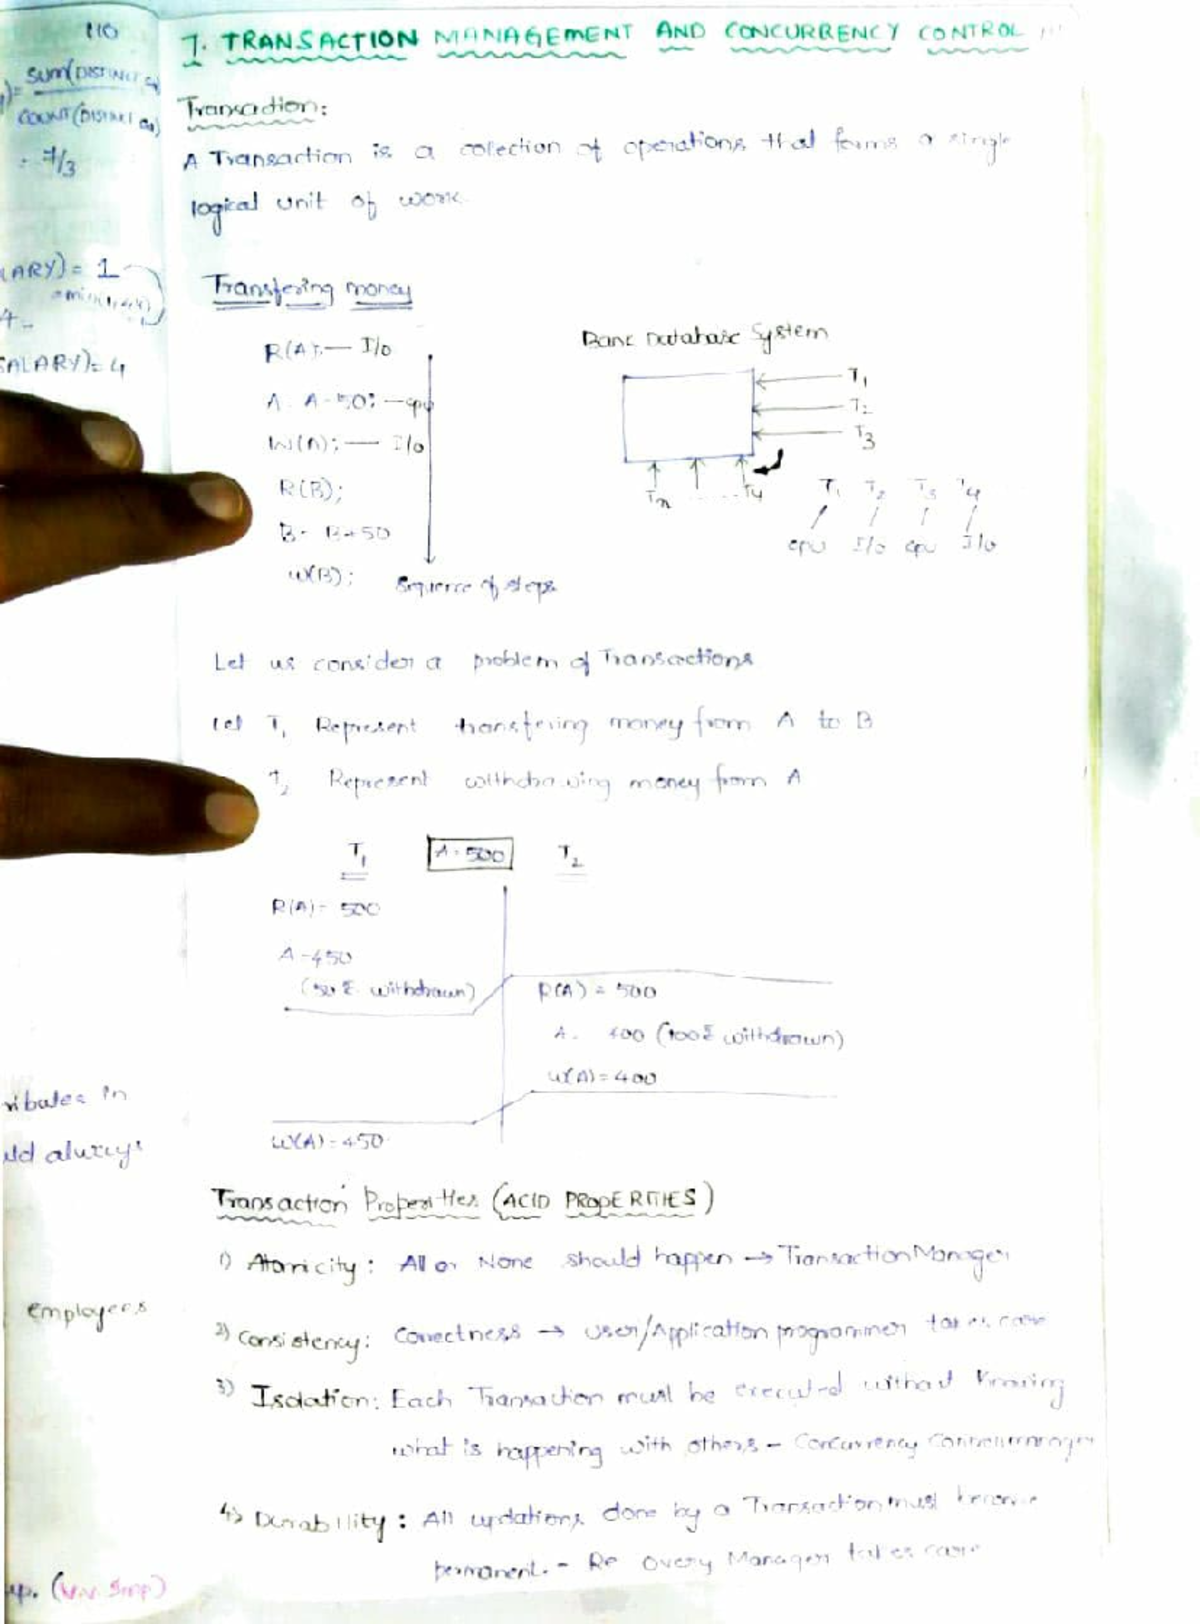 110
SUM(DISTINCT
COUNT(DISTINCT
= 7/3
LARY) = 1
4
SALARY) = 4
ributes in
uld always
employees
up. (V.V. Imp)
7. TRANSACTION MANAGEMENT AND CONCURRENCY CONTROL
Transaction:
A Transaction is a colection of operations that forms a single
logical unit of work.
Transfering money
R(A); — I/o
A = A-50; — cpu
W(A); — I/o
R(B);
B = B+50
W(B);
Sequence of steps
Bank Database System
T1
T2
T3
Tn ...... T4
T1 T2 T3 T4
cpu I/o cpu I/o
Let us consider a problem of Transactions
Let T1 Represent transfering money from A to B
T2 Represent withdrawing money from A
T1 A = 500 T2
R(A) = 500
A = 450
(50₹ withdrawn)
R(A) = 500
A = 400 (100₹ withdrawn)
W(A) = 400
W(A) = 450
Transaction Properties (ACID PROPERTIES)
1) Atomicity: All or None should happen → Transaction Manager
2) Consistency: Correctness → user/Application programmer takes care
3) Isolation: Each Transaction must be executed without knowing
what is happening with others - Concurrency Control manager
4) Durability: All updations done by a Transaction must become
permanent. - Recovery Manager takes care